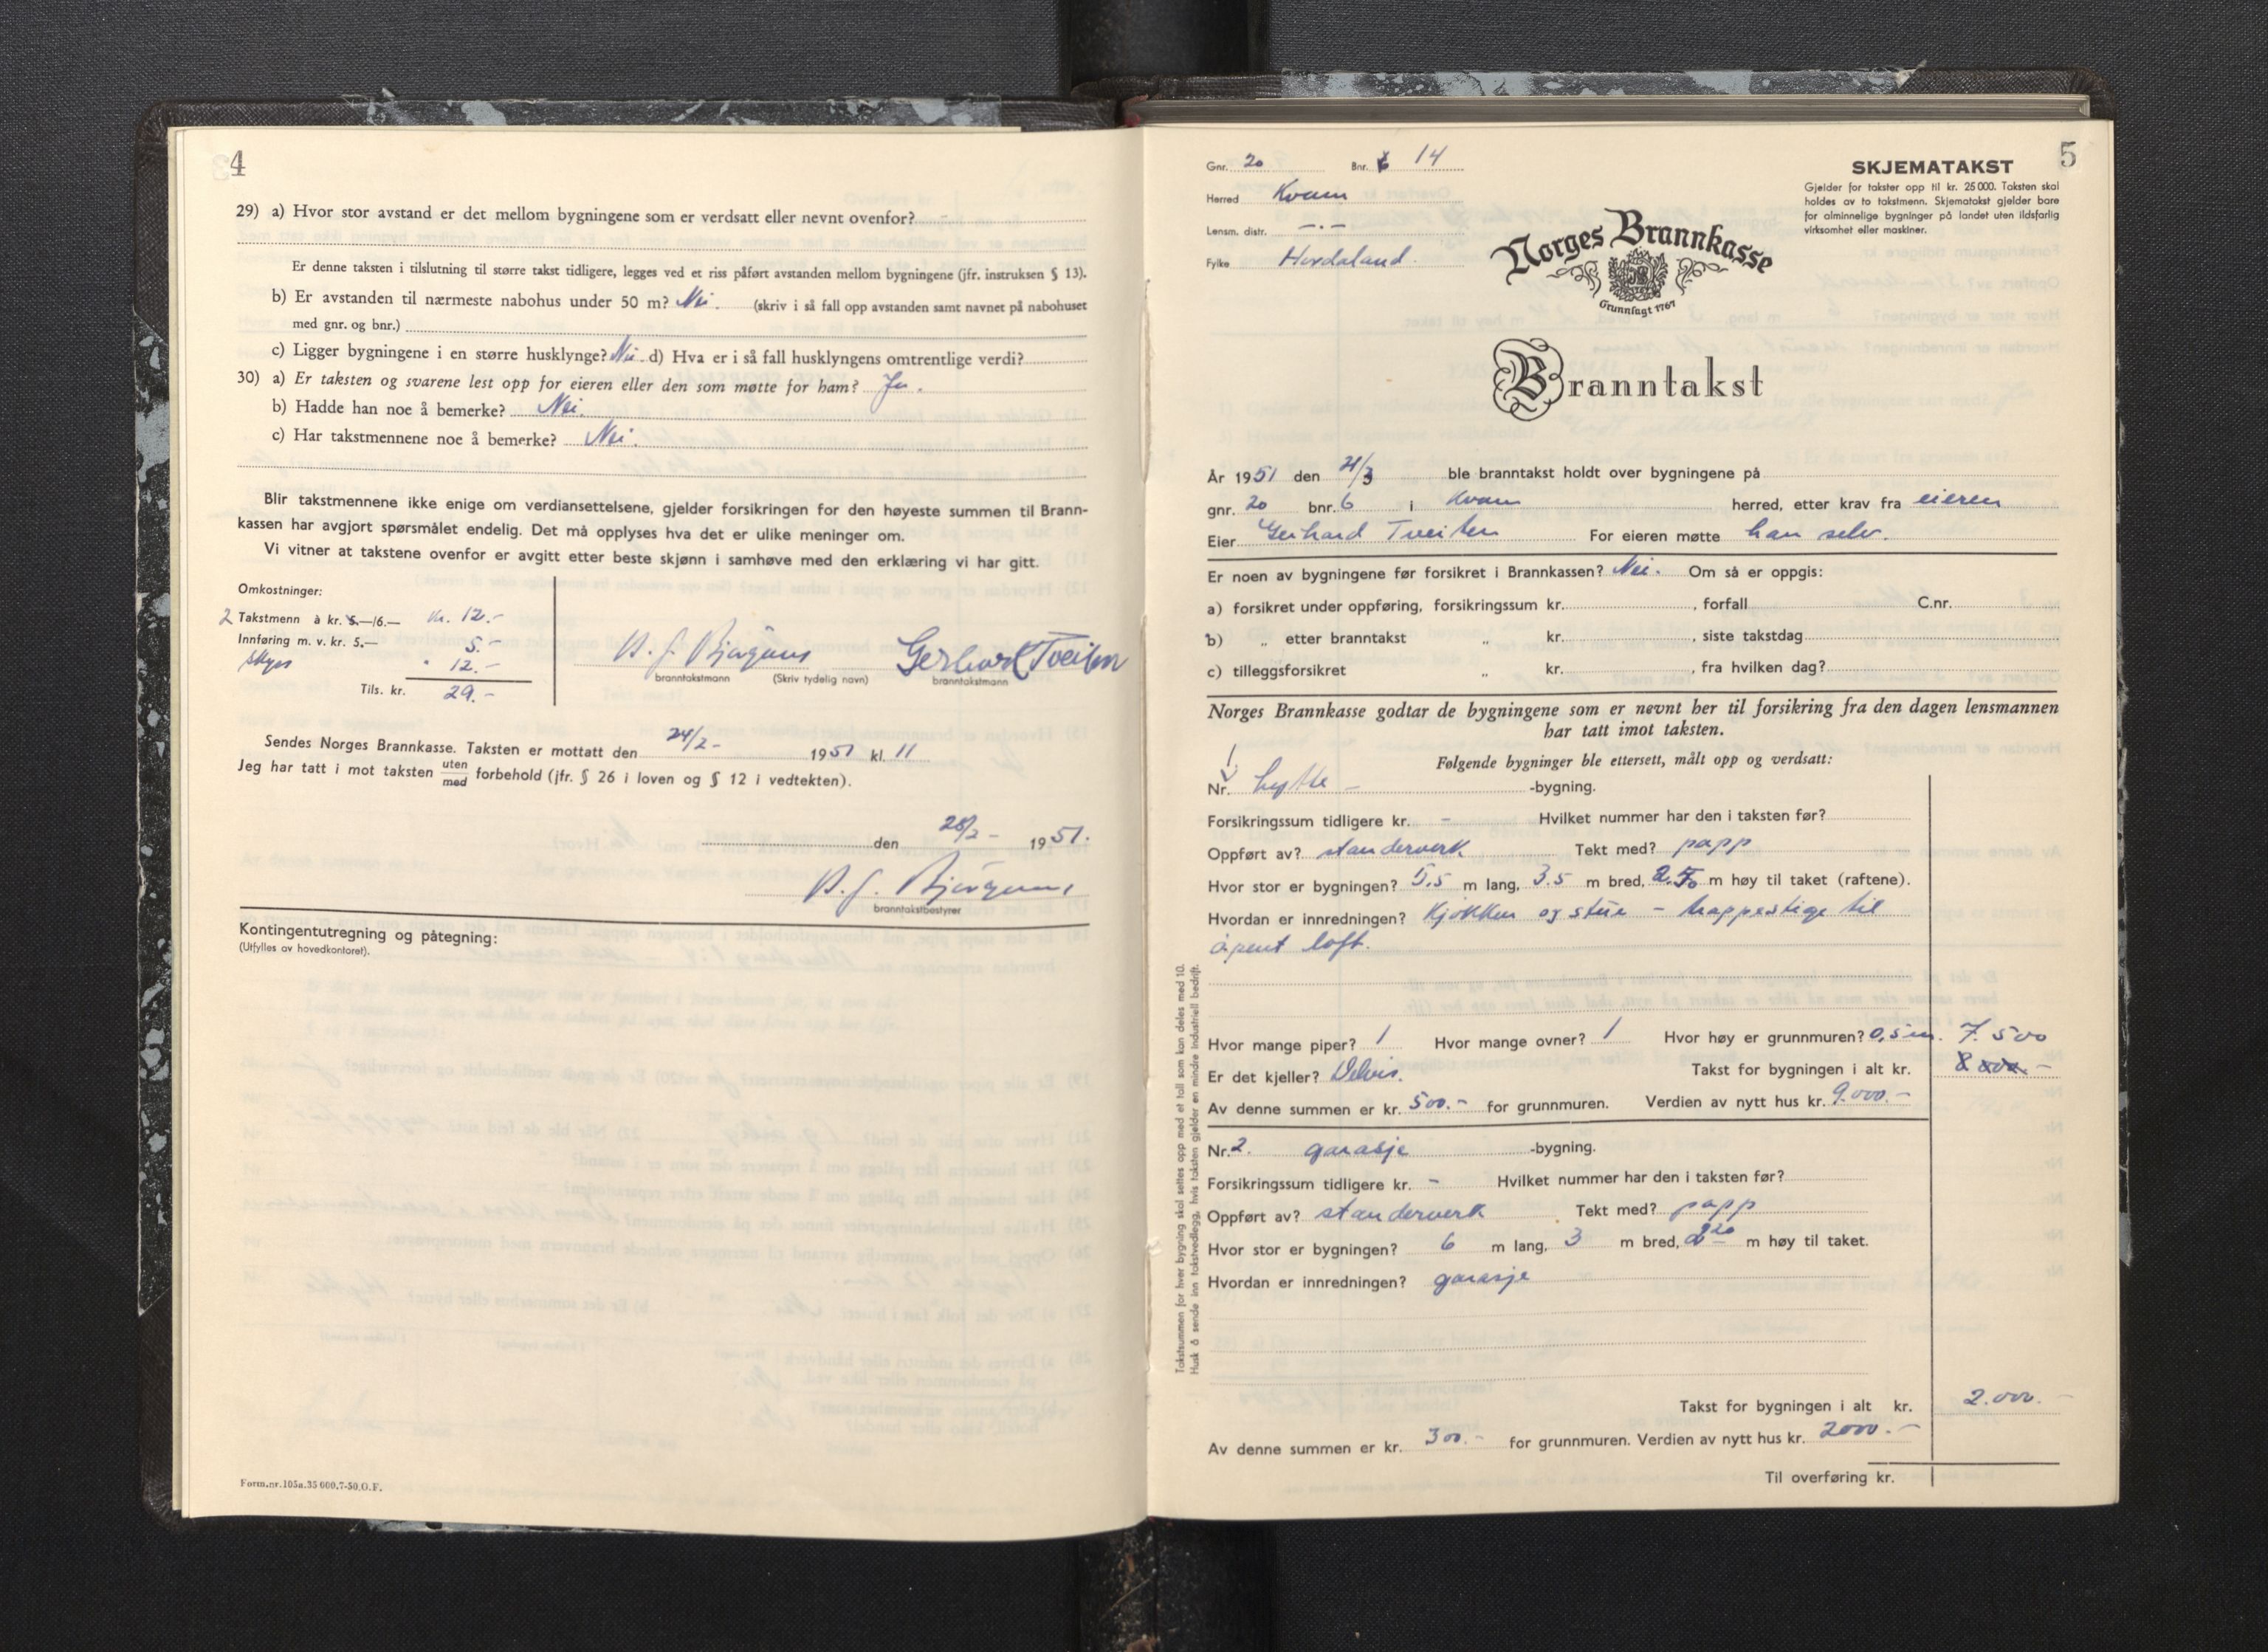 4
29) a) Hvor stor avstand er det mellom bygningene som er verdsatt eller nevnt ovenfor? -
Er denne taksten i tilslutning til større takst tidligere, legges ved et riss påført avstanden mellom bygningene (jfr. instruksen § 13).
b) Er avstanden til nærmeste nabohus under 50 m? Nei. (skriv i så fall opp avstanden samt navnet på nabohuset
med gnr. og bnr.)
c) Ligger bygningene i en større husklynge? Nei. d) Hva er i så fall husklyngens omtrentlige verdi?
30) a) Er taksten og svarene lest opp for eieren eller den som møtte for ham? Ja.
b) Hadde han noe å bemerke? Nei.
c) Har takstmennene noe å bemerke? Nei.
Blir takstmennene ikke enige om verdiansettelsene, gjelder forsikringen for den høyeste summen til Brann-
kassen har avgjort spørsmålet endelig. Det må opplyses hva det er ulike meninger om.
Vi vitner at takstene ovenfor er avgitt etter beste skjønn i samhøve med den erklæring vi har gitt.
Omkostninger:
2 Takstmenn à kr. 5.—/6.— kr. 12.-
Innføring m. v. kr. 5.— 5.-
Skyss " 12.-
Tils. kr. 29.-
Gerhard Tveiten
branntakstmann (Skriv tydelig navn) branntakstmann
Sendes Norges Brannkasse. Taksten er mottatt den 24/2- 1951 kl. 11
Jeg har tatt i mot taksten uten/med forbehold (jfr. § 26 i loven og § 12 i vedtekten).
den 28/2- 1951.
branntakstbestyrer
Kontingentutregning og påtegning:
(Utfylles av hovedkontoret).
Form.nr.105a.35 000.7-50.O.F.
5
Gnr. 20 Bnr. 6 14
Herred Kvam
Lensm. distr. —.—
Fylke Hordaland.
SKJEMATAKST
Gjelder for takster opp til kr. 25 000. Taksten skal
holdes av to takstmenn. Skjematakst gjelder bare
for alminnelige bygninger på landet uten ildsfarlig
virksomhet eller maskiner.
Norges Brannkasse
Grunnlagt 1767
Branntakst
År 1951 den 21/3 ble branntakst holdt over bygningene på
gnr. 20 bnr. 6 i Kvam herred, etter krav fra eieren
Eier Gerhard Tveiten For eieren møtte han selv.
Er noen av bygningene før forsikret i Brannkassen? Nei. Om så er oppgis:
a) forsikret under oppføring, forsikringssum kr. , forfall C.nr.
b) „ etter branntakst „ kr. , siste takstdag
c) tilleggsforsikret „ kr. , fra hvilken dag?
Norges Brannkasse godtar de bygningene som er nevnt her til forsikring fra den dagen lensmannen
har tatt imot taksten.
Følgende bygninger ble ettersett, målt opp og verdsatt:
Nr. 1 hytte - -bygning.
Forsikringssum tidligere kr. - Hvilket nummer har den i taksten før?
Oppført av? standerverk Tekt med? papp
Hvor stor er bygningen? 5.5 m lang, 3.5 m bred, 2.50 m høy til taket (raftene).
Hvordan er innredningen? Kjøkken og stue - trappestige til
åpent loft.
Hvor mange piper? 1 Hvor mange ovner? 1 Hvor høy er grunnmuren? 0,5 m. 7.500
Er det kjeller? Delvis. Takst for bygningen i alt kr. 8000.-
Av denne summen er kr. 500.- for grunnmuren. Verdien av nytt hus kr. 9.000.-
Nr. 2. garasje -bygning.
Forsikringssum tidligere kr. - Hvilket nummer har den i taksten før?
Oppført av? standerverk Tekt med? papp
Hvor stor er bygningen? 6 m lang, 3 m bred, 2 20 m høy til taket.
Hvordan er innredningen? garasje
Takst for bygningen i alt kr. 2.000.-
Av denne summen er kr. 300.- for grunnmuren. Verdien av nytt hus kr. 2000.-
Til overføring kr.
Takstsummen for hver bygning skal settes opp med et tall som kan deles med 10.
Husk å sende inn takstvedlegg, hvis taksten gjelder en mindre industriell bedrift.